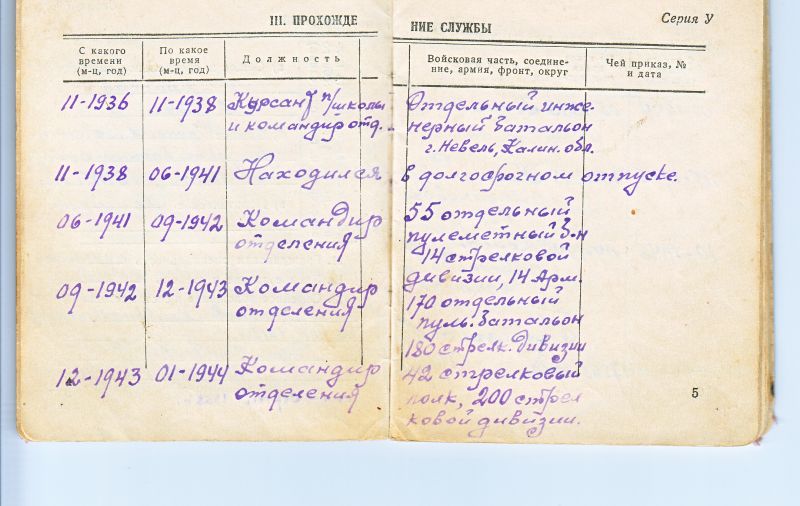 III. ПРОХОЖДЕ
НИЕ СЛУЖБЫ
Серия У
С какого времени (м-ц, год)
По какое время (м-ц, год)
Должность
Войсковая часть, соедине-
ние, армия, фронт, округ
Чей приказ, №
и дата
11-1936 11-1938 Курсант п/школы Отдельный инже-
и командир отд. нерный батальон
г. Невель, Калин. обл.
11-1938 06-1941 Находился в долгосрочном отпуске.
06-1941 09-1942 Командир 55 отдельный
отделения пулеметный б-н
14 стрелковой
дивизии, 14 Арм.
09-1942 12-1943 Командир 170 отдельный
отделения пуль. батальон
180 стрелк. дивизии
12-1943 01-1944 Командир 42 стрелковый
отделения полк, 200 стрел
ковой дивизии.
5